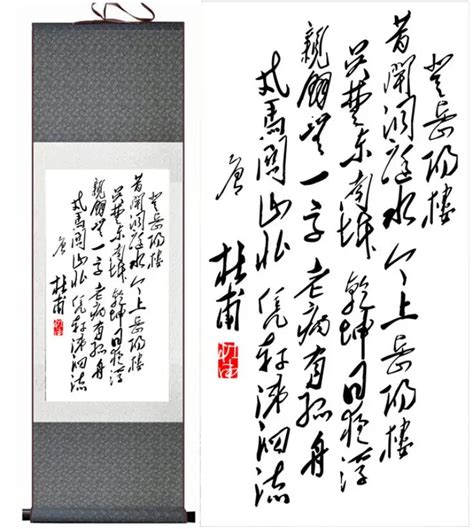 登岳陽楼
昔聞洞庭水 今上岳陽楼
吴楚东南坼 乾坤日夜浮
親朋無一字 老病有孤舟
戎馬関山北 凭軒涕泗流
唐 杜甫
登岳陽楼
昔聞洞庭水 今上岳陽楼
吴楚东南坼 乾坤日夜浮
親朋無一字 老病有孤舟
戎馬関山北 凭軒涕泗流
唐 杜甫